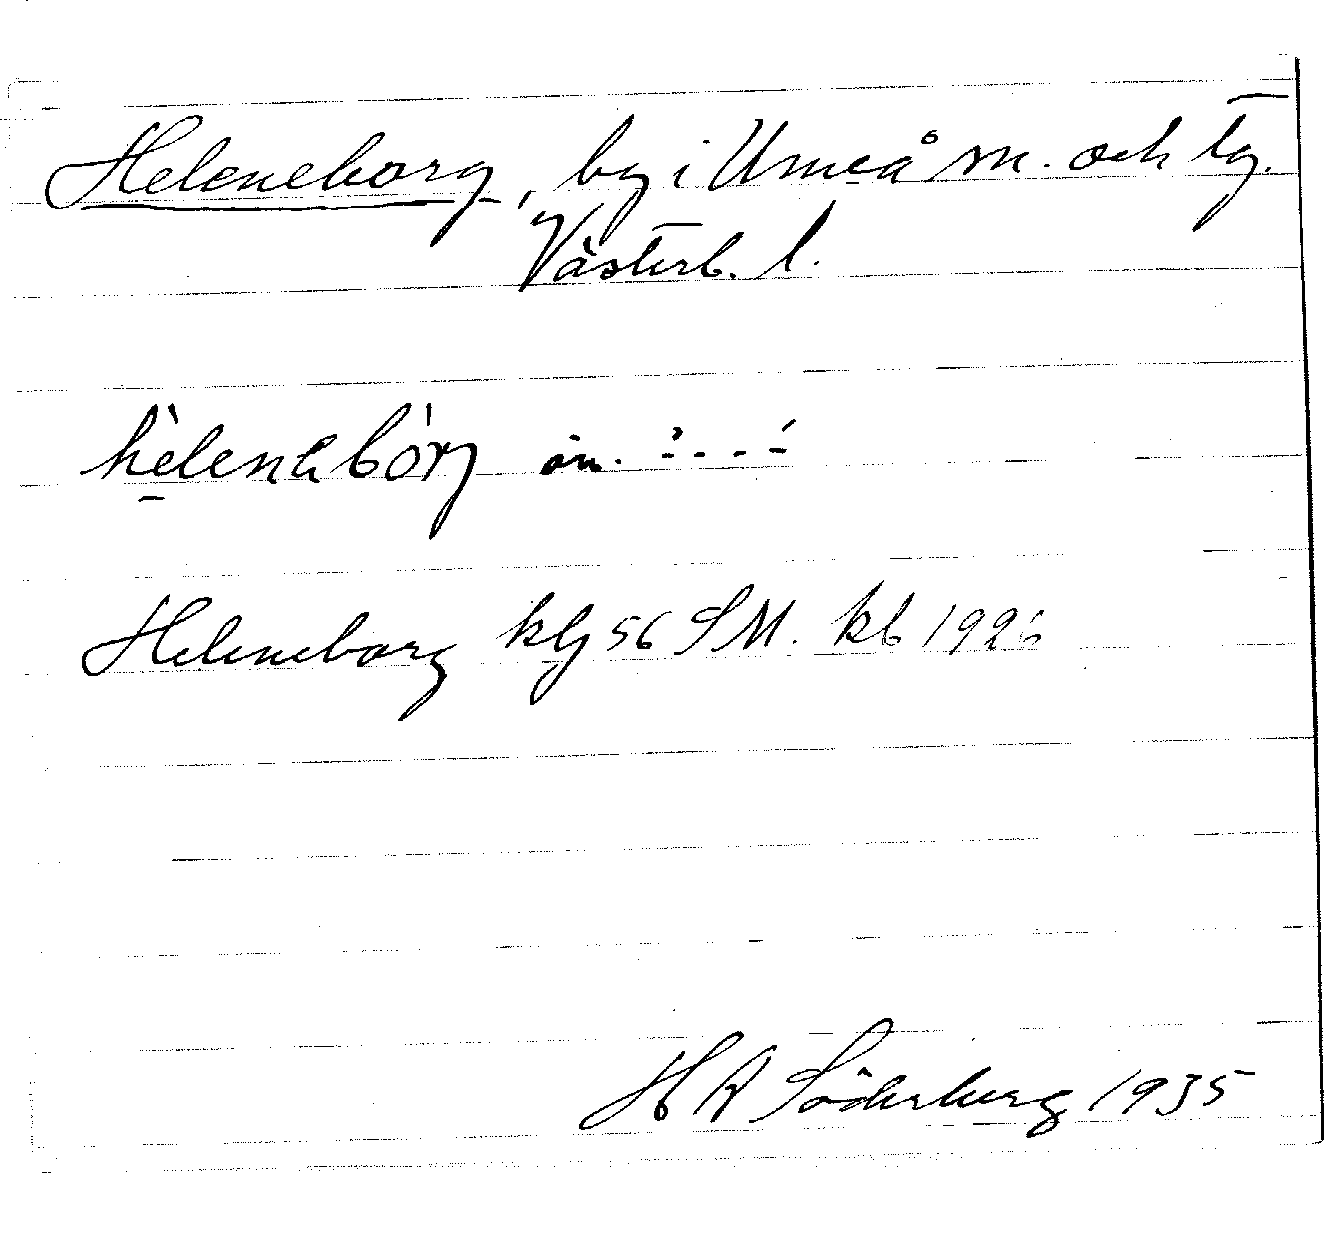 Heleneborg, by i Umeå sn. och tg.
Västerb. l.
hèlenabórj
Heleneborg klj 56 SM. kb 1926
H A Söderberg 1935